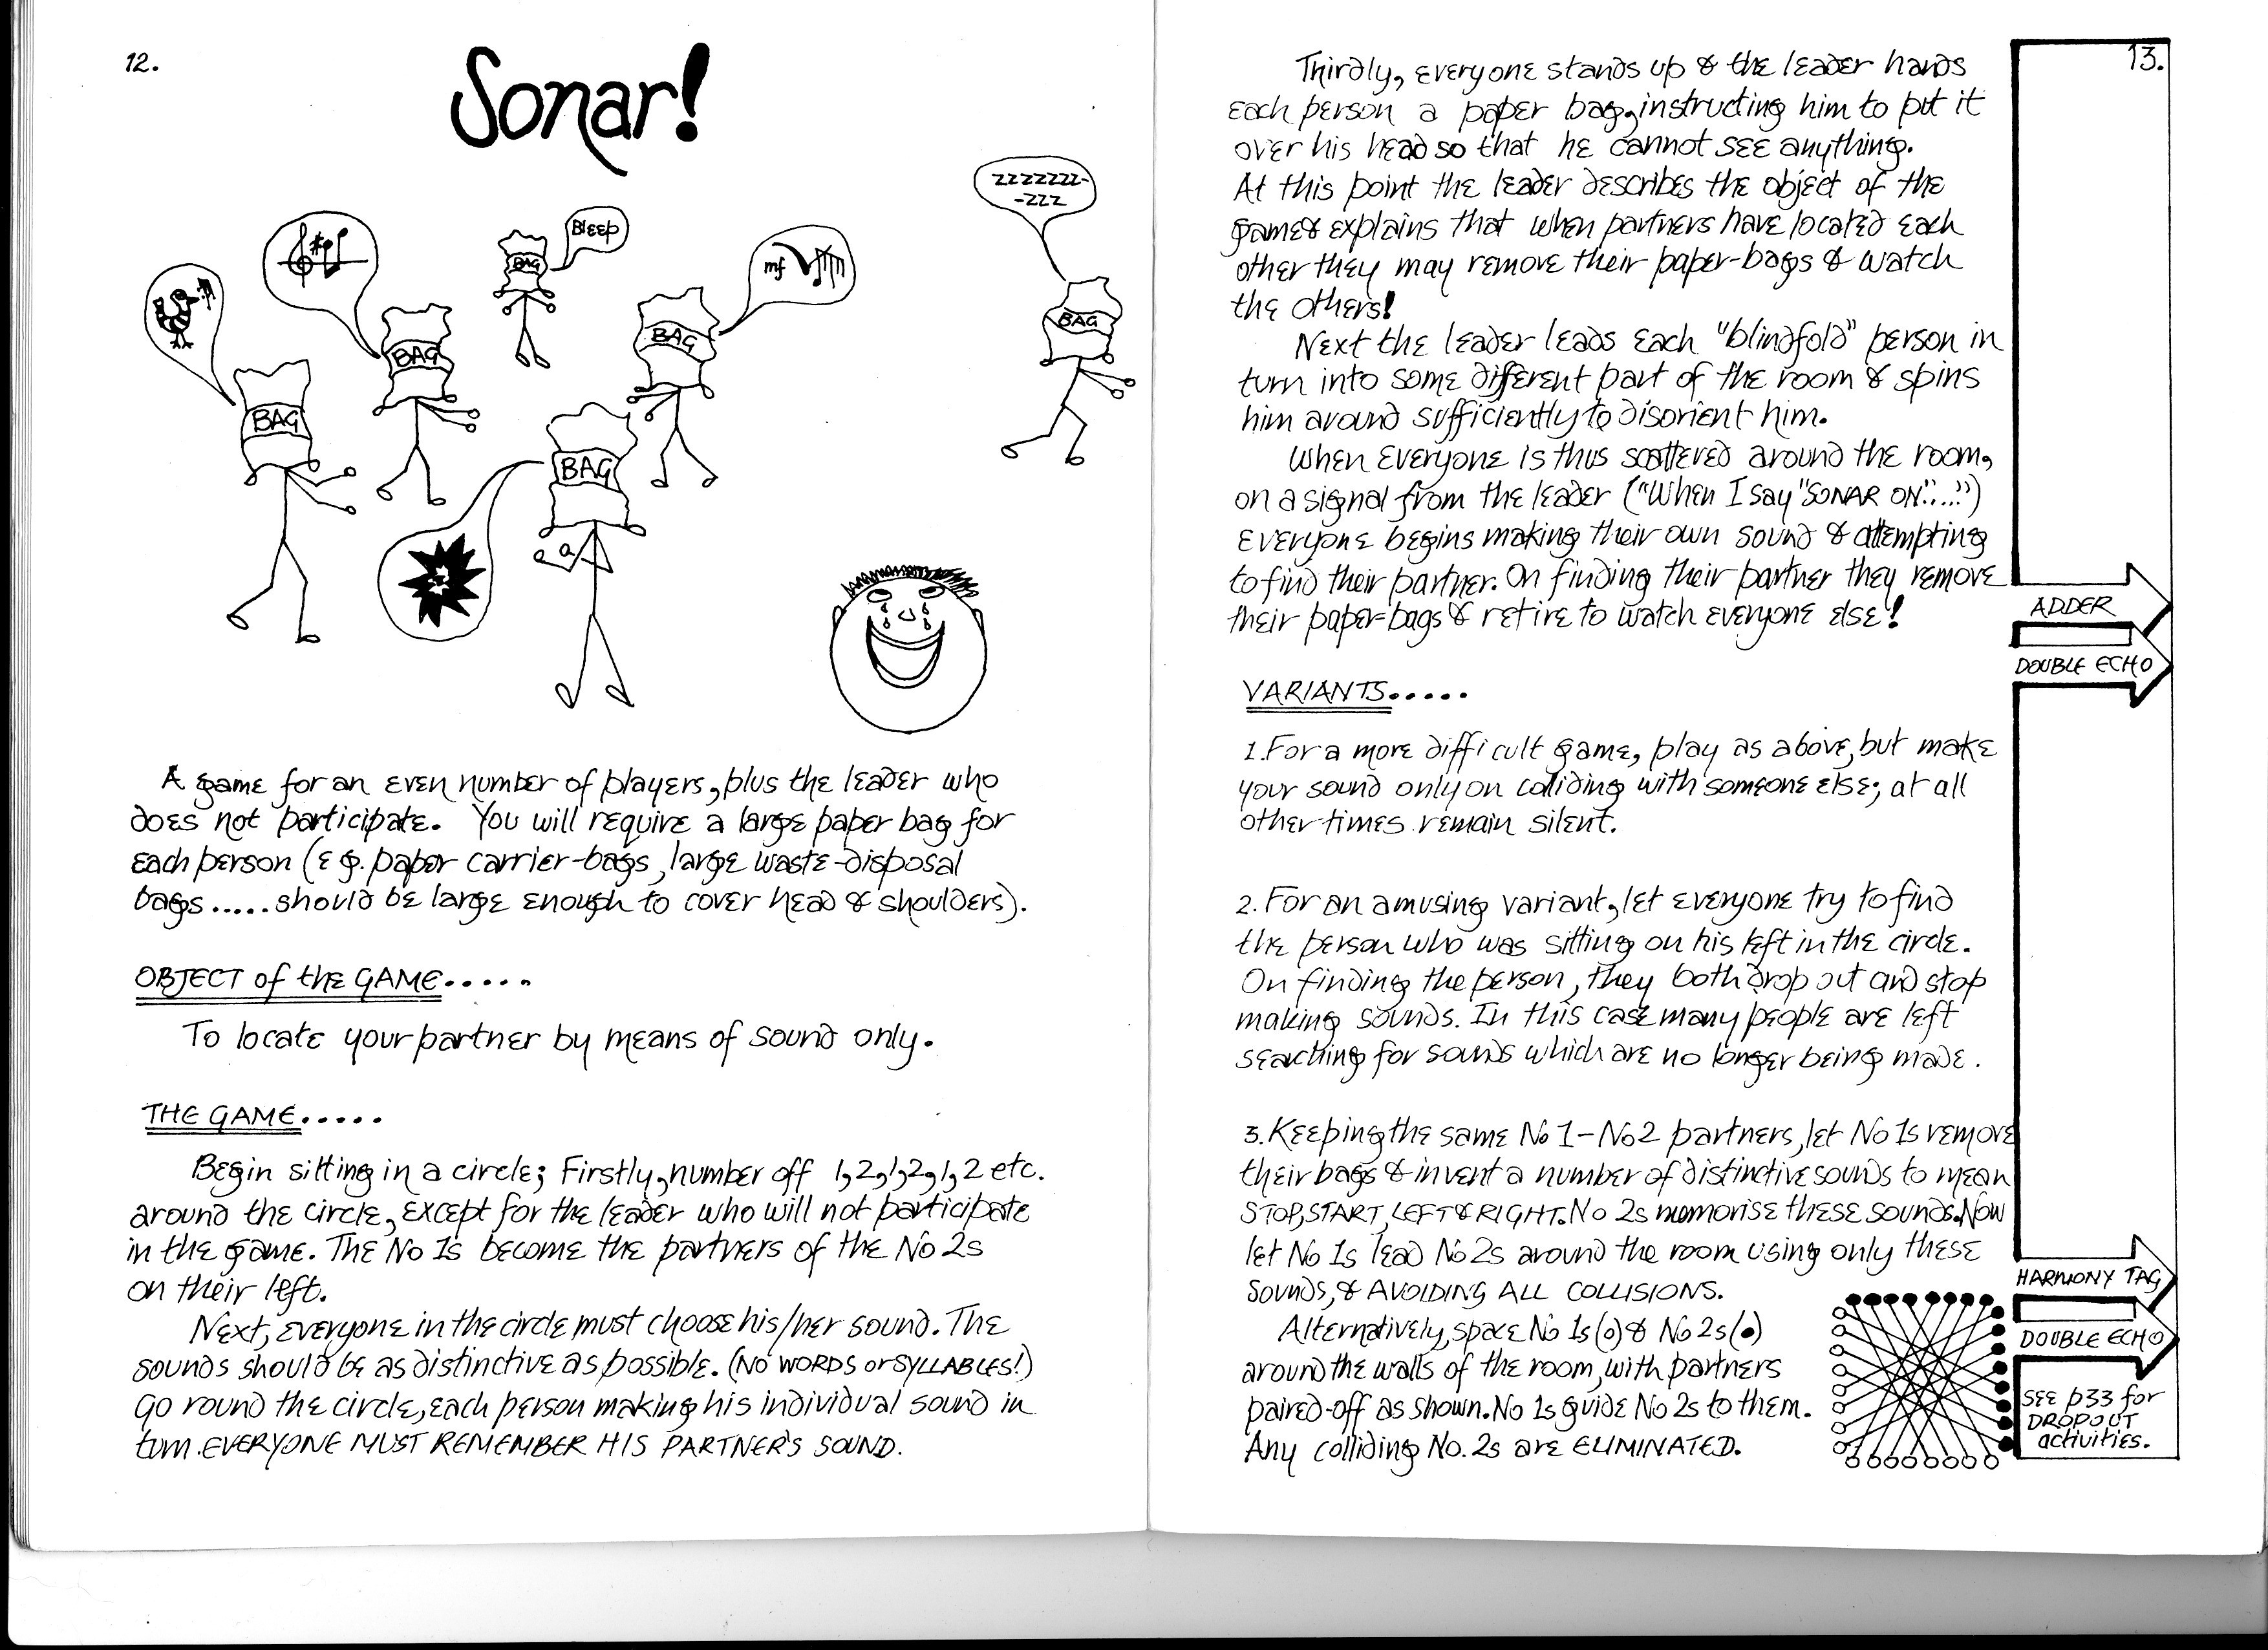 12.
Sonar!
zzzzzzz-
-zzz
Bleep
mf
BAG
BAG
BAG
BAG
BAG
BAG
A game for an even number of players, plus the leader who
does not participate. You will require a large paper bag for
each person (eg. paper carrier-bags, large waste-disposal
bags..... should be large enough to cover head & shoulders).
OBJECT of the GAME.....
To locate your partner by means of sound only.
THE GAME.....
Begin sitting in a circle; Firstly, number off 1,2,1,2,1,2 etc.
around the circle, except for the leader who will not participate
in the game. The No 1s become the partners of the No 2s
on their left.
Next, everyone in the circle must choose his/her sound. The
sounds should be as distinctive as possible. (NO WORDS or SYLLABLES!)
Go round the circle, each person making his individual sound in
turn. EVERYONE MUST REMEMBER HIS PARTNER'S SOUND.
13.
Thirdly, everyone stands up & the leader hands
each person a paper bag, instructing him to put it
over his head so that he cannot see anything.
At this point the leader describes the object of the
game & explains that when partners have located each
other they may remove their paper-bags & watch
the others!
Next the leader leads each "blindfold" person in
turn into some different part of the room & spins
him around sufficiently to disorient him.
When everyone is thus scattered around the room,
on a signal from the leader ("When I say "SONAR ON"....")
everyone begins making their own sound & attempting
to find their partner. On finding their partner they remove
their paper-bags & retire to watch everyone else!
VARIANTS.....
1. For a more difficult game, play as above, but make
your sound only on colliding with someone else; at all
other times remain silent.
2. For an amusing variant, let everyone try to find
the person who was sitting on his left in the circle.
On finding the person, they both drop out and stop
making sounds. In this case many people are left
searching for sounds which are no longer being made.
3. Keeping the same No 1-No 2 partners, let No 1s remove
their bags & invent a number of distinctive sounds to mean
STOP, START, LEFT & RIGHT. No 2s memorise these sounds. Now
let No 1s lead No 2s around the room using only these
sounds, & AVOIDING ALL COLLISIONS.
Alternatively, space No 1s (o) & No 2s (•)
around the walls of the room, with partners
paired-off as shown. No 1s guide No 2s to them.
Any colliding No. 2s are ELIMINATED.
ADDER
DOUBLE ECHO
HARMONY TAG
DOUBLE ECHO
SEE p33 for
DROPOUT
activities.